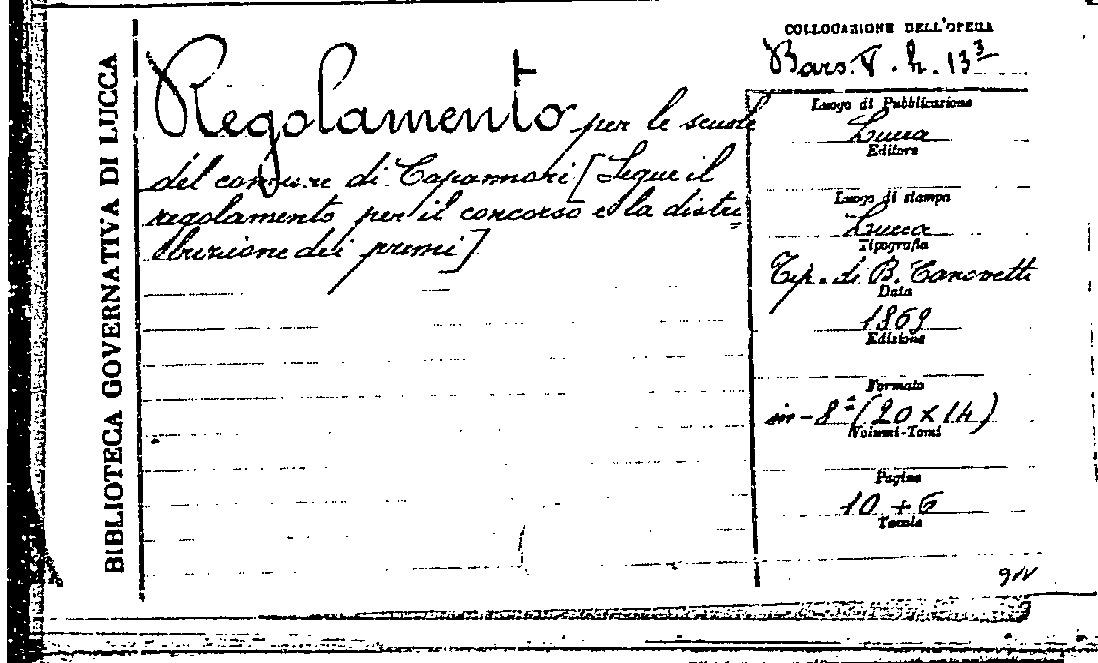 BIBLIOTECA GOVERNATIVA DI LUCCA
Regolamento per le scuole
del comune di Capannori [Segue il
regolamento per il concorso e la distri=
buzione dei premi]
COLLOCAZIONE DELL'OPERA
Bars. V. h. 13³
Luogo di Pubblicazione
Lucca
Editore
Luogo di stampa
Lucca
Tipografia
Tip. di B. Canovetti
Data
1869
Edizione
Formato
in-8º (20 x 14)
Volumi-Tomi
Pagine
10 + 6
Tavole